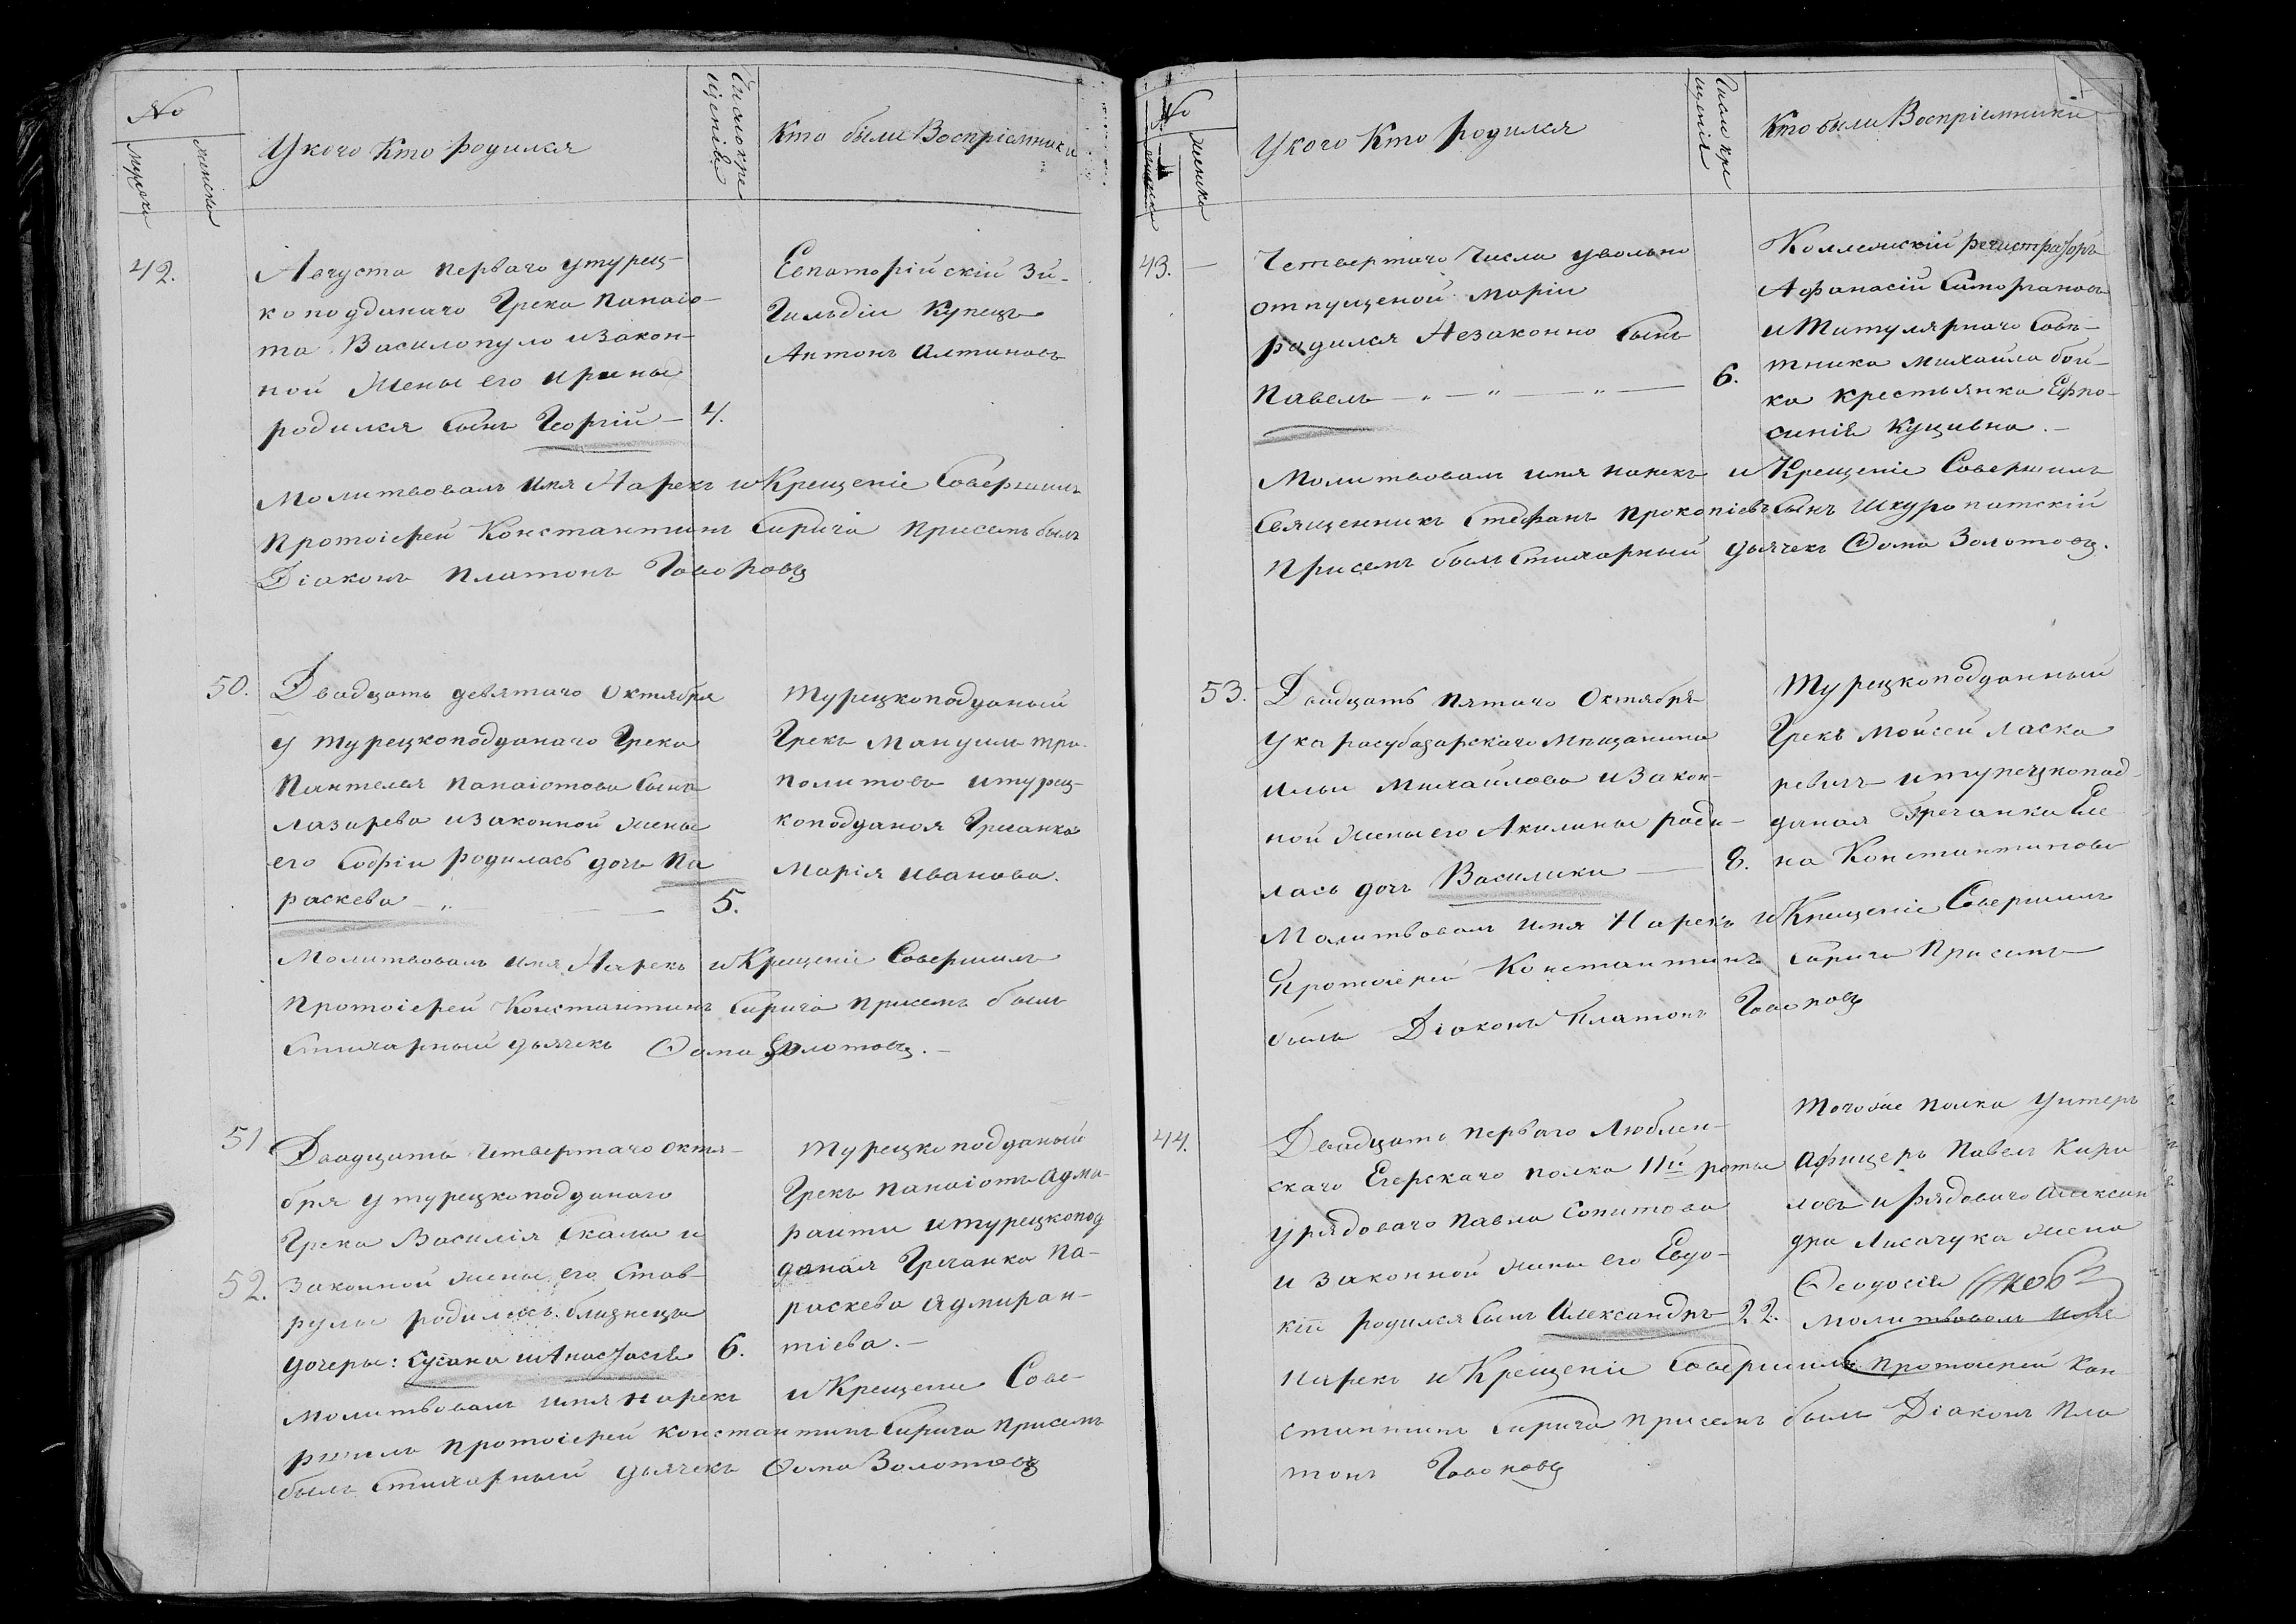 No
Мужска
Женска
У кого Кто родился
Число кре
щенія
Кто были Воспріемники
42.
Августа перваго утурец-
коподданаго Грека Панаіо-
та Василопуло изакон-
ной Жены его Ирины
родился Сынъ Георгій — 4.
Евпаторійскій 3й-
Гильдіи Купецъ
Антонъ Алтиновъ
Молитвовалъ имя Нарекъ и Крещеніе Совершилъ
Протоіерей Константинъ Спирича Присемъ былъ
Діаконъ Платонъ Говоровъ
50.
Двадцать девятаго Октября
у Турецкоподданаго Грека
Пантелея Панаіотова Сына
Лазарева изаконной жены
его Софіи родилась дочь Па
раскева — „ — — 5.
Турецкоподданый
Грекъ Мануилъ Тра-
политовъ и турец-
коподданая Гречанка
Марія Иванова.
Молитвовалъ имя Нарекъ и Крещеніе Совершилъ
Протоіерей Константинъ Спирича Присемъ былъ
Стихарный дьячекъ Ѳома Золотовъ. —
51
52.
Двадцать Четвертаго Октя-
бря у турецкоподданаго
Грека Василія Скалы и
законной жены его Став-
рулы родились близнецы
дочеры: Сусана и Анастасія 6.
Турецкоподданый
Грекъ Панаіотъ Адми-
ранти и турецкопод
даная Гречанка Па-
раскева Адмиран-
тіева. —
Молитвовалъ имя нарекъ и Крещеніе Сове-
ршилъ Протоіерей Константинъ Спирича Присемъ
былъ Стихарный дьячекъ Ѳома Золотовъ
No
Женска
У кого Кто родился
Число кре
щенія
Кто были Воспріемники
43. —
Четвертаго Числа увольно
отпущеной Маріи
родился Незаконно Сынъ
Павелъ — „ — „ — „ — 6.
Коллежскій регистраторъ
Афанасій
и Титулярнаго Совѣ-
тника Михаила Бой-
ка крестьянка Ефро-
синія Куцивна. —
Молитвовалъ имя нарекъ и Крещеніе Совершилъ
Священникъ Стефанъ Прокопіевъ Сынъ Шкуропатскій
Присемъ былъ Стихарный дьячекъ Ѳома Золотовъ.
53.
Двадцать Пятаго Октября
у карасубазарскаго Мѣщанина
Ильи Михайлова изакон-
ной жены его Акилины роди-
лась дочь Василики — 8.
Турецкоподданный
Грекъ Мойсей Ласка
ревичъ и турецкопод-
даная Гречанка Еле
на Константинова
Молитвовалъ имя Нарекъ и Крещеніе Совершилъ
Протоіерей Константинъ Спирича Присемъ
былъ Діаконъ Платонъ Говоровъ
44.
Двадцать перваго Люблен-
скаго Егерскаго полка 11й роты
у рядоваго Павла Сопитова
и законной жены его Евдо-
кіи родился Сынъ Александръ 22.
Тогоже полка Унтеръ
Афицеръ Павелъ Кири-
ловъ и рядоваго Алексан
дра Лисачука жена
Ѳеодосія
Молитвовалъ имя
Нарекъ и Крещеніе Совершилъ Протоіерей Кон
стантинъ Спирича присемъ былъ Діаконъ Пла
тонъ Говоровъ